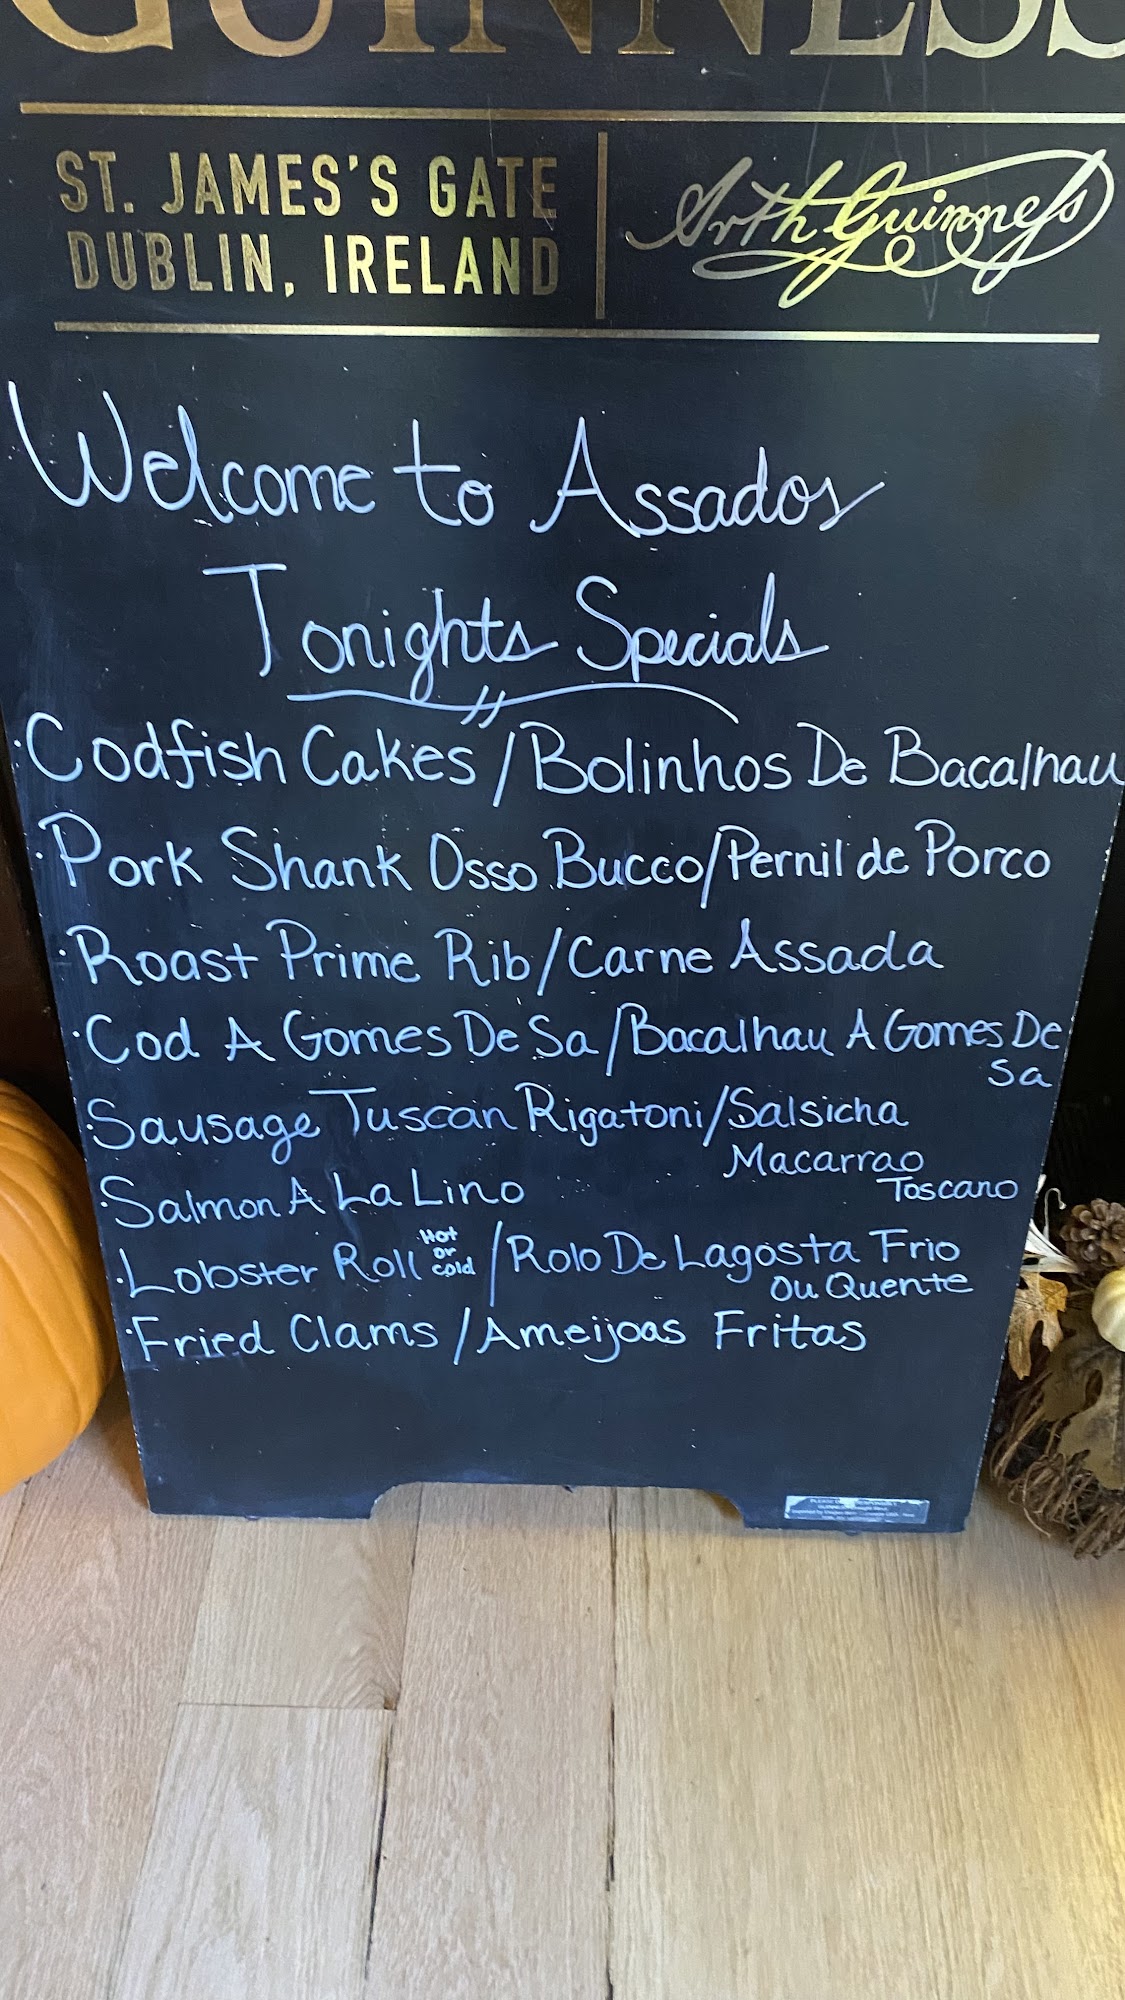 GUINNESS
ST. JAMES'S GATE
DUBLIN, IRELAND
Arth Guinness
Welcome to Assados
Tonights Specials
· Codfish Cakes / Bolinhos De Bacalhau
· Pork Shank Osso Bucco / Pernil de Porco
· Roast Prime Rib / Carne Assada
· Cod A Gomes De Sa / Bacalhau A Gomes De
Sa
· Sausage Tuscan Rigatoni / Salsicha
Macarrao
Toscano
· Salmon A La Lino
· Lobster Roll Hot or cold / Rolo De Lagosta Frio
Ou Quente
· Fried Clams / Ameijoas Fritas